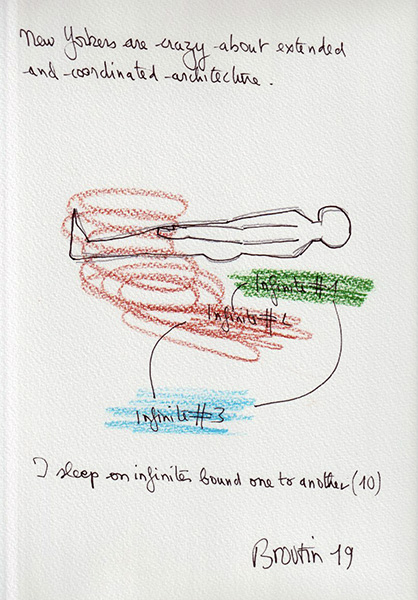 New Yorkers are crazy about extended
and coordinated architecture.
Infinite #1
Infinite #2
Infinite #3
I sleep on infinites bound one to another (10)
Broutin 19